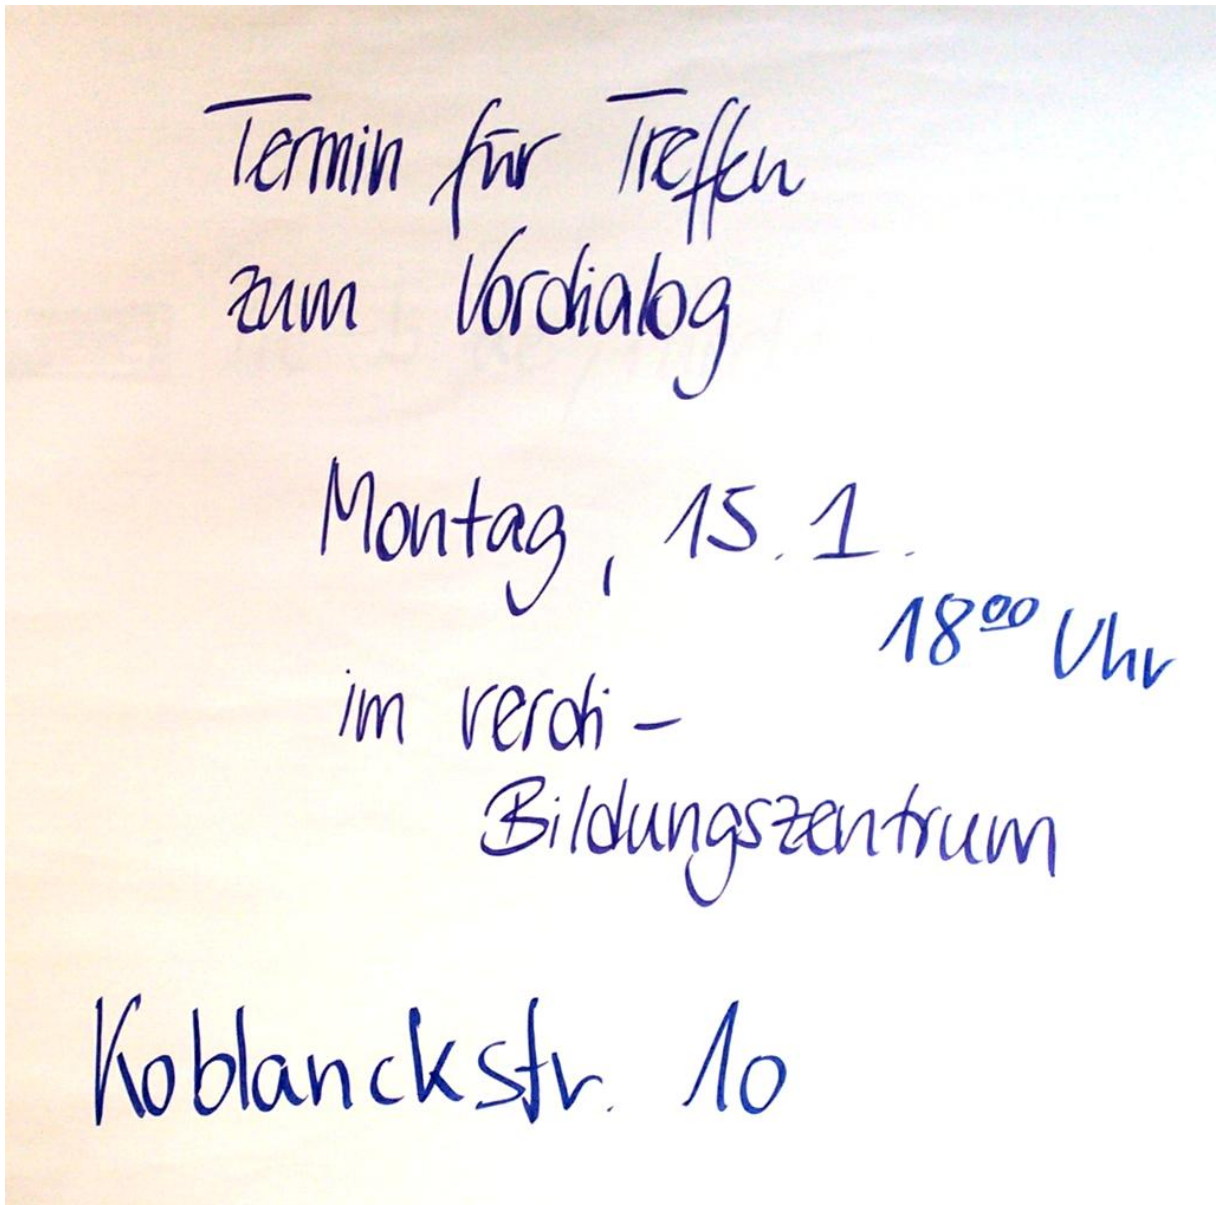 Termin für Treffen
zum Vordialog
Montag, 15.1.
18⁰⁰ Uhr
im verdi-
Bildungszentrum
Koblanckstr. 10